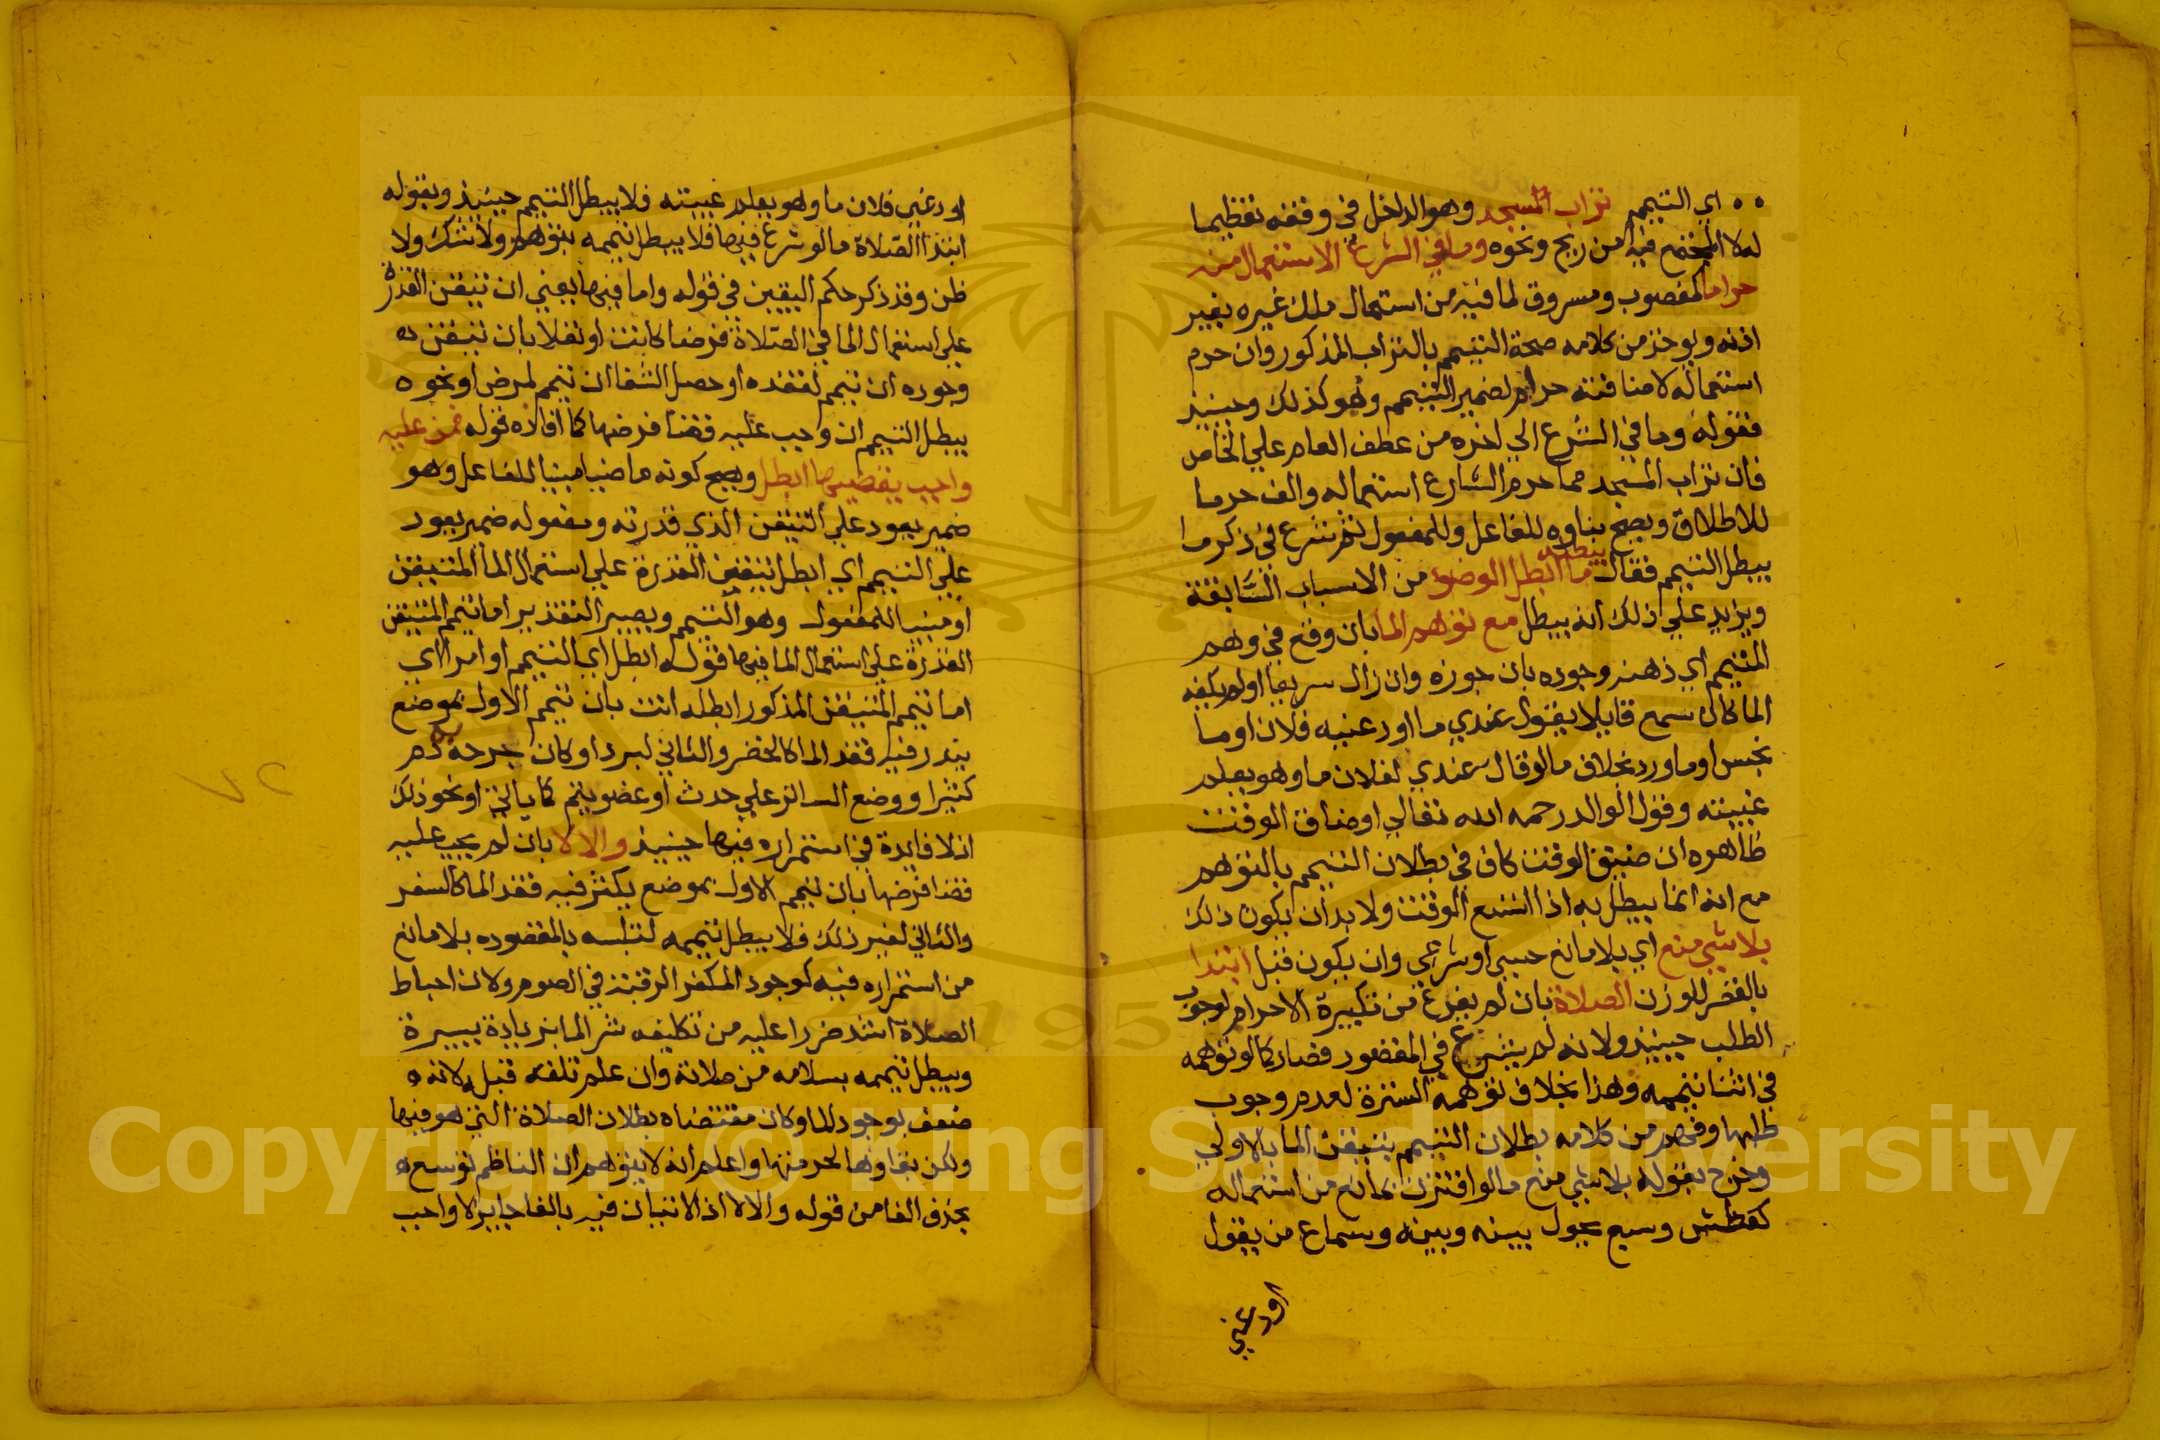 اي التيمم تراب المسجد وهو الداخل في وقفه تعظيما
له لا المجتمع فيه من ريح ونحوه وما في الشرع الاستعمال منه
حراما كمغصوب ومسروق لما فيه من استعمال ملك غيره بغير
اذنه ويوخذ من كلامه صحة التيمم بالتراب المذكور وان حرم
استعماله لاضافته حرام لضمير التيمم وهو كذلك وحينيذ
فقوله وما في الشرع الي اخره من عطف العام علي الخاص
فان تراب المسجد مما حرم الشارع استعماله والف حرما
للاطلاق ويصح بناوه للفاعل وللمفعول ثم شرع في ذكر ما
يبطل التيمم فقال يبطله ما ابطل الوضوء من الاسباب السابقة
ويزيد علي ذلك انه يبطل مع توهم الما بان وقع في وهم
المتيمم اي ذهنه وجوده بان جوزه وان زال سريعا اولم يكفه
الما كان سمع قايلا يقول عندي ما اودعنيه فلان او ما
نجس او ماورد بخلاف مالو قال عندي لفلان ما وهو يعلم
غيبته وقول الوالد رحمه الله تعالي اوضاق الوقت
ظاهره ان ضيق الوقت كاف في بطلان التيمم بالتوهم
مع انه انما يبطل به اذا اتسع الوقت ولا بد ان يكون ذلك
بلا شي منع اي بلا مانع حسي او شرعي وان يكون قبل ابتدا
بالقصر للوزن الصلاة بان لم يفرغ من تكبيرة الاحرام لوجوب
الطلب حينيذ ولانه لم يشرع في المقصود فصار كما لو توهمه
في اثنا تيممه وهذا بخلاف توهمه السترة لعدم وجوب
طلبها وفهم من كلامه بطلان التيمم بتيقن الما بالاولي
وخرج بقوله بلا شي منع مالو اقترن بمانع من استعماله
كعطش وسبع يحول بينه وبينه وسماع من يقول
اودعني
اودعني فلان ما وهو يعلم غيبته فلا يبطل التيمم حينيذ وبقوله
ابتدا الصلاة مالو شرع فيها فلا يبطل تيممه بتوهم ولا شك ولا
ظن وقد ذكر حكم اليقين في قوله واما فيها يعني ان تيقن القدرة
علي استعمال الما في الصلاة فرضا كانت او نفلا بان تيقن
وجوده ان تيمم لفقده او حصل الشفا ان تيمم لمرض او نحوه
يبطل التيمم ان وجب عليه قضا فرضها كما افاده قوله فمن عليه
واجب يقضيها ابطل ويصح كونه ماضيا مبنيا للفاعل وهو
ضمير يعود علي التيقن الذي قدرته ومفعوله ضمير يعود
علي التيمم اي ابطل تيقن القدرة علي استعمال الما المتيقن
او مبنيا للمفعول وهو التيمم ويصير التقدير اما تيمم المتيقن
القدرة علي استعمال الما فيها فقوله ابطل اي التيمم او امرا اي
اما تيمم المتيقن المذكور ابطله انت بان تيمم الاول بموضع
يندر فيه فقد الما كالحضر والثاني لبرد او كان بجرحه دم
كثير او وضع الساتر علي حدث او عضو تيمم كما ياتي او نحو ذلك
اذ لا فايدة في استمراره فيها حينيذ والا لا بان لم يجب عليه
قضا فرضها بان تيمم الاول بموضع يكثر فيه فقد الما كالسفر
والثاني لغير ذلك فلا يبطل تيممه لتلبسه بالمقصود بلا مانع
من استمراره فيه كوجود المكفر الرقبة في الصوم ولان احباط
الصلاة اشد ضررا عليه من تكليفه شر الما بزيادة يسيرة
ويبطل تيممه بسلامه من صلاته وان علم تلفه قبله لانه
ضعف بوجود الما وكان مقتضاه بطلان الصلاة التي هو فيها
ولكن بقاوها لحرمتها واعلم انه لا يتوهم ان الناظم توسع
بحذف الفا من قوله والا لا اذ الاتيان فيه بالفا جايز لا واجب